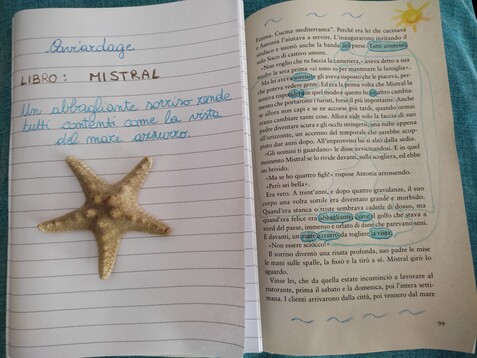 Aviardage
LIBRO: MISTRAL
Un abbagliante sorriso rende
tutti contenti come la vista
del mare azzurro.
Fatima. Cucina mediterranea". Perché era lei che cucinava
e Antonia l'aiutava a servire. L'inaugurarono invitando il
sindaco e suonò anche la banda del paese. Tutti contenti,
solo Stasti di cattivo umore.
«Non voglio che tu faccia la cameriera,» aveva detto a sua
madre la sera prima «ti sono to per mantenere la famiglia».
Ma lei aveva sorriso e gli aveva risposto che le piaceva, per-
ché poteva vedere gente. Ed era la prima volta che Mistral la
sentiva rispondere in quel modo e quanto fu altro cambia-
mento che portarono i turisti, forse il più importante. Anche
se allora non capì e se ne accorse più tardi, quando ormai
erano cambiate tante cose. Allora vide solo la faccia di suo
padre diventare scura e gli occhi stringersi, una nube appena
all'orizzonte, un accenno del temporale che sarebbe scop-
piato due anni dopo. All'improvviso lui si alzò dalla sedia.
«Gli uomini ti guardano» le disse avvicinandosi. E in quel
momento Mistral se lo ricorda davanti, sulla scogliera, ed ebbe
un brivido.
«Ma se ho quattro figli!» rispose Antonia arrossendo.
«Però sei bella».
Era vero. A trent'anni, e dopo quattro gravidanze, il suo
corpo una volta sottile era diventato grande e morbido.
Quand'era stanca o triste sembrava caderle di dosso, ma
quand'era felice era abbagliante, come il golfo che stava a
nord del paese, immenso e orlato di dune che parevano seni.
E davanti, un mare azzurro da togliere la vista.
«Non essere sciocco!»
Il sorriso diventò una risata profonda, suo padre le mise
le mani sulle spalle, la fissò e la tirò a sé. Mistral girò lo
sguardo.
Vinse lei, che da quella estate incominciò a lavorare al
ristorante, prima il sabato e la domenica, poi l'intera setti-
mana. I clienti arrivarono dalla città, poi vennero dal mare
99